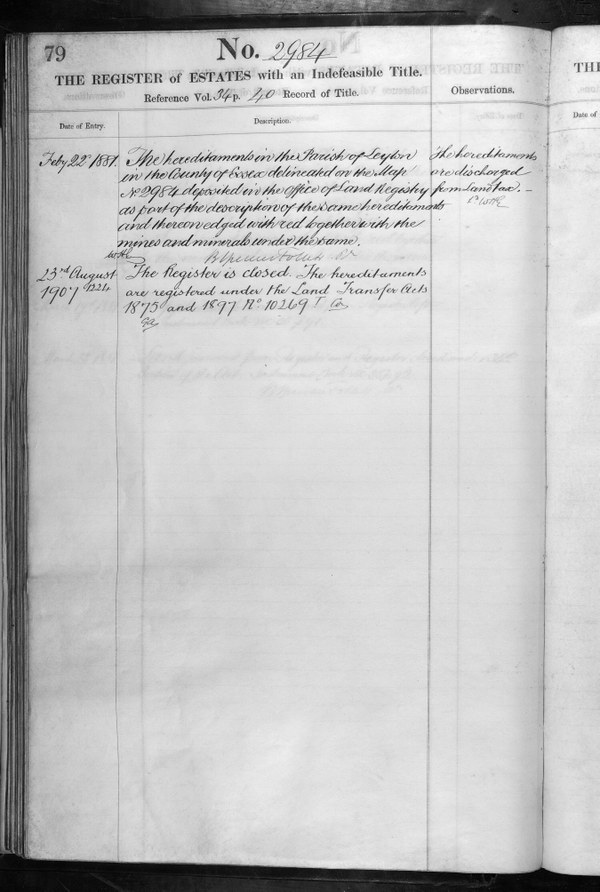 79
No. 2984
THE REGISTER of ESTATES with an Indefeasible Title.
Reference Vol. 34 p. 40 Record of Title.
Observations.
Date of Entry.
Description.
Feby 22nd 1881.
The hereditaments in the Parish of Leyton
in the County of Essex delineated on the Map
No 2984 deposited in the Office of Land Registry
as part of the description of the same hereditaments
and thereon edged with red together with the
mines and minerals under the same.
The hereditaments
are discharged
from Land tax. –
23rd August
1907 1224
The Register is closed. The hereditaments
are registered under the Land Transfer Acts
1875 and 1897 No 10269
TH
Date of